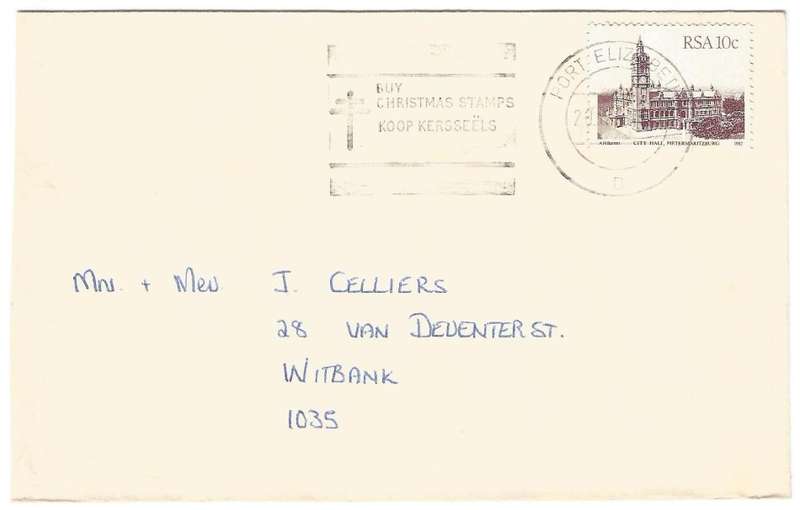 BUY
CHRISTMAS STAMPS
KOOP KERSSEËLS
PORT ELIZABETH
D
RSA 10c
CITY HALL, PIETERMARITZBURG 1982
Mnr. + Mev. J. CELLIERS
28 VAN DEVENTER ST.
WITBANK
1035